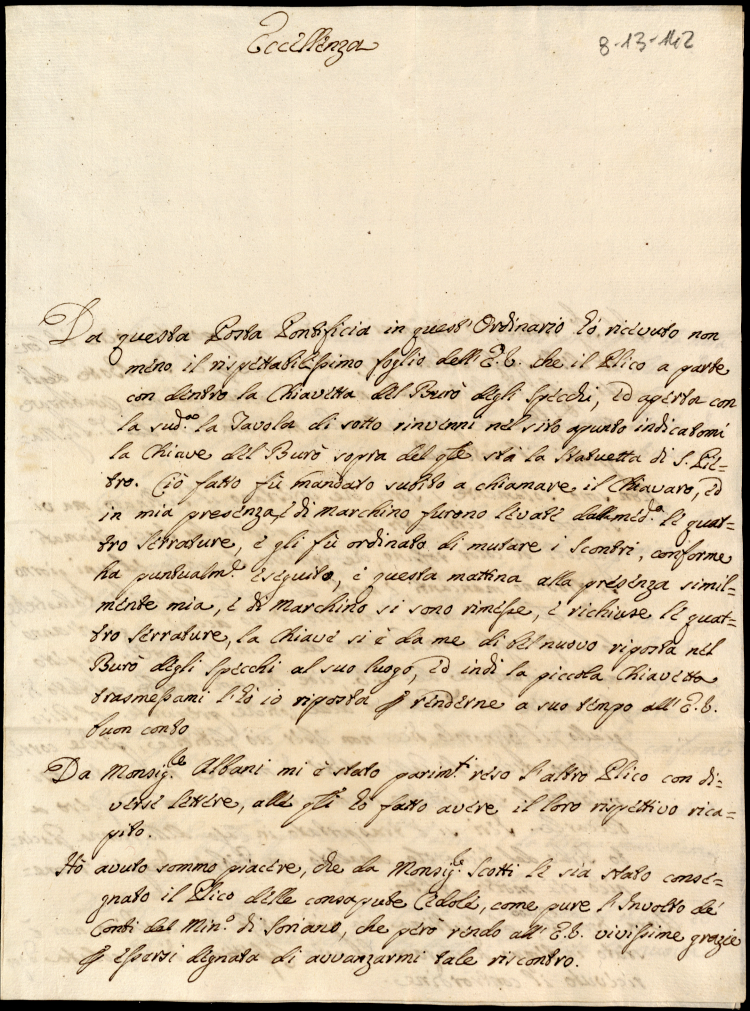 Eccellenza
8-13-142
Da questa Posta Pontificia in quest'Ordinario hò ricevuto non
meno il rispettabilissimo foglio dell'E.V. che il Plico a parte
con dentro la Chiavetta del Burò degli Specchi, ed aperta con
la sud.a la Tavola di sotto rinvenni nel sito apunto indicatomi
la Chiave del Burò sopra del qle stà la Statuetta di S. Pie-
tro. Ciò fatto fù mandato subito a chiamare il Chiavaro, ed
in mia presenza, è di Marchino furono levate dalla med.a le quat-
tro Serrature, è gli fù ordinato di mutare i Scontri, conforme
ha puntualm.e eseguito, è questa mattina alla presenza simil-
mente mia, è di Marchino si sono rimesse, è richiuse le quat-
tro serrature, la Chiave si è da me di bel nuovo riposta nel
Burò degli Specchi al suo luogo, ed indi la piccola Chiavetta
trasmessami l'hò io riposta p renderne a suo tempo all'E.V.
buon conto
Da Monsig.re Albani mi è stato parim.ti reso l'altro Plico con di-
verse lettere, alle qli hò fatto avere il loro rispettivo rica-
pito.
Hò avuto sommo piacere, che da Monsig.re Scotti le sia stato conse-
gnato il Plico delle consapute Cedole, come pure l'Involto de'
Conti del Min.o di Soriano, che però rendo all'E.V. vivissime grazie
p essersi degnata di avvanzarmi tale riscontro.